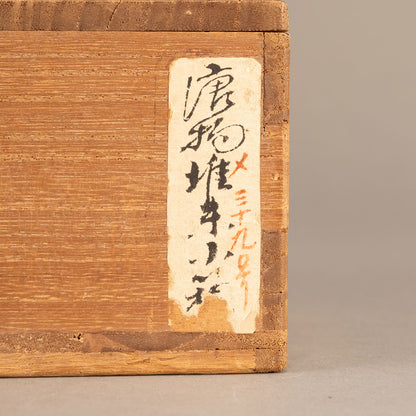 唐物堆朱小
〆三十九号